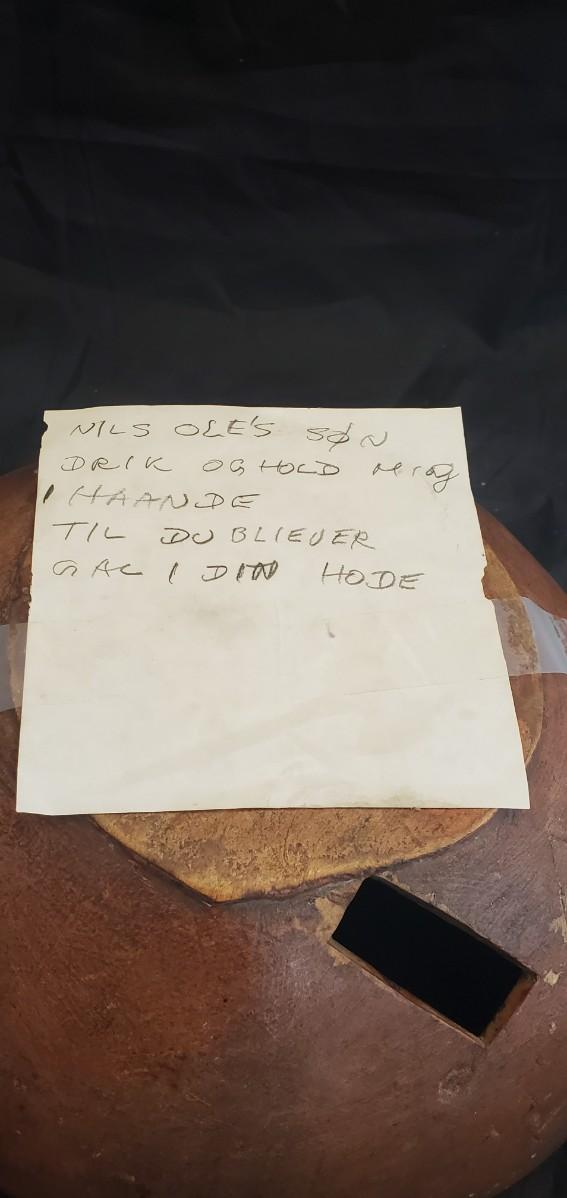 NILS OLE'S SØN
DRIK OG HOLD MIG
I HAANDE
TIL DU BLIEVER
GAL I DIN HODE